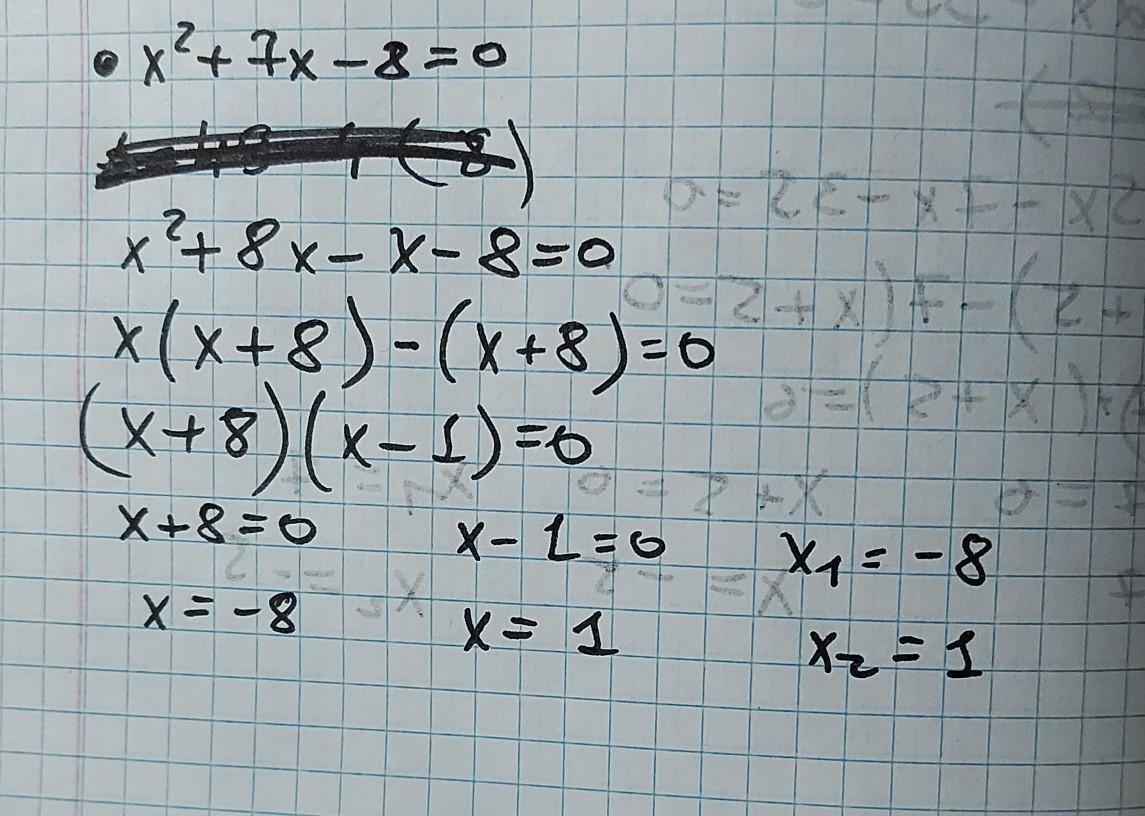 • x² + 7x - 8 = 0
x² + 8x - x - 8 = 0
x(x + 8) - (x + 8) = 0
(x + 8)(x - 1) = 0
x + 8 = 0 x - 1 = 0 x₁ = -8
x = -8 x = 1 x₂ = 1